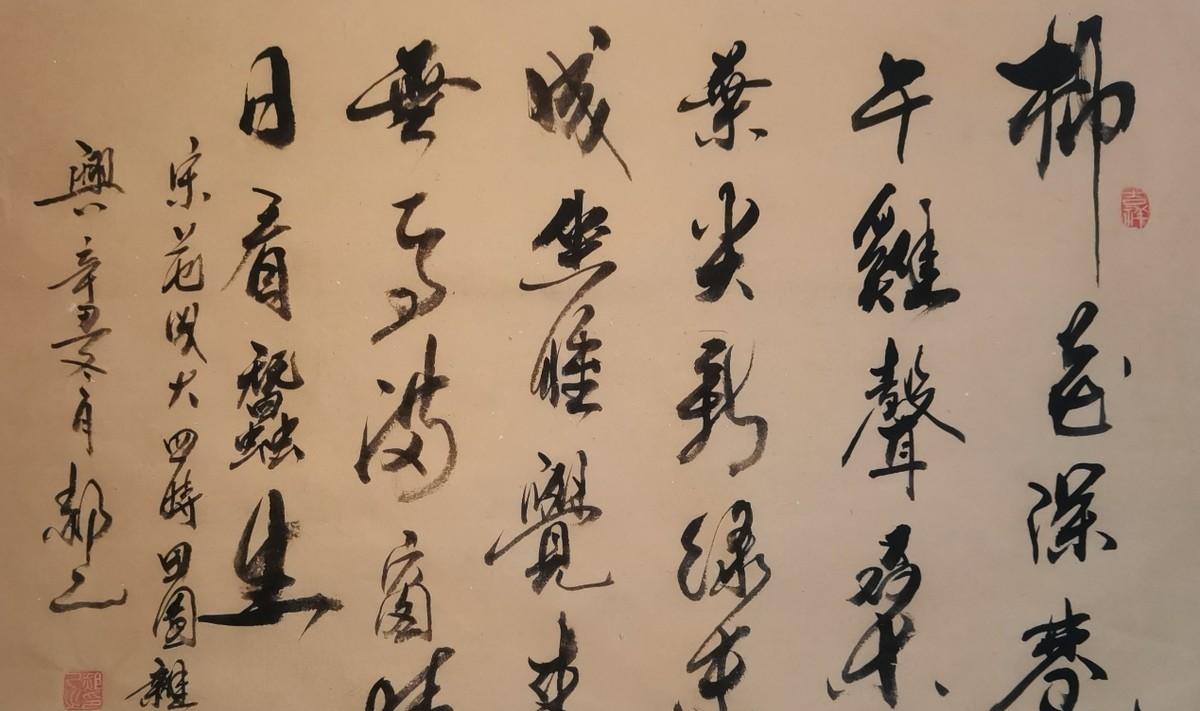 柳花深巷
午雞聲桑
葉尖新綠未
成坐睡覺来
無一事滿窗晴
日看蠶生
宋范成大四時田園雜
興辛丑冬月郝
吉祥